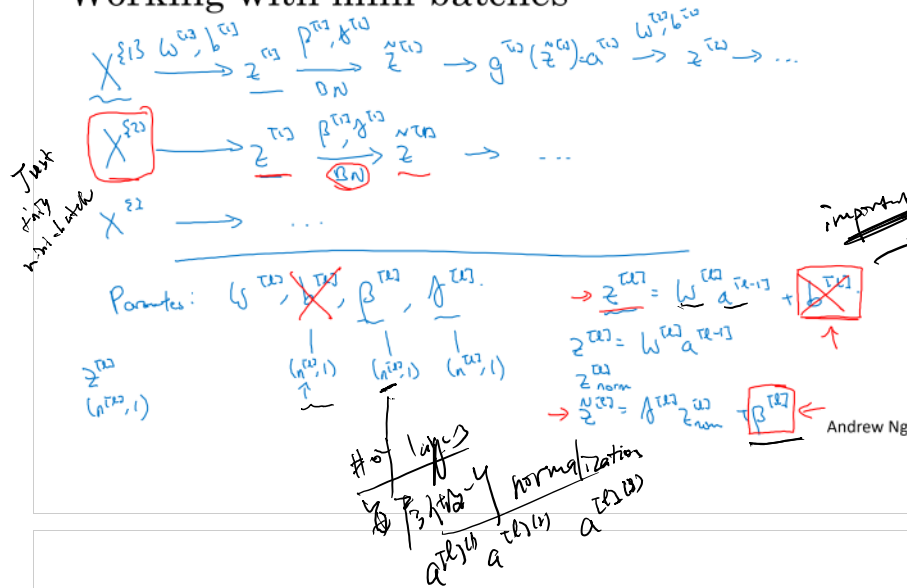 Working with mini-batches
X^{1} W^[1], b^[1] → z^[1] β^[1], γ^[1] → BN z̃^[1] → g^[1](z̃^[1])=a^[1] W^[2], b^[2] → z^[2] → ...
X^{2} → z^[1] β^[1], γ^[1] → BN z̃^[1] → ...
X^{3} → ...
Just
mini-batch
important
Parameters: W^[l], b^[l], β^[l], γ^[l].
→ z^[l] = W^[l] a^[l-1] + b^[l]
z^[l] = W^[l] a^[l-1]
z^[l]
(n^[l], 1)
(n^[l], 1) (n^[l], 1) (n^[l], 1)
z^[l]_norm
→ z̃^[l] = γ^[l] z^[l]_norm + β^[l] ←
Andrew Ng
# of layers
normalization
a^[l](1) a^[l](2) a^[l](3)